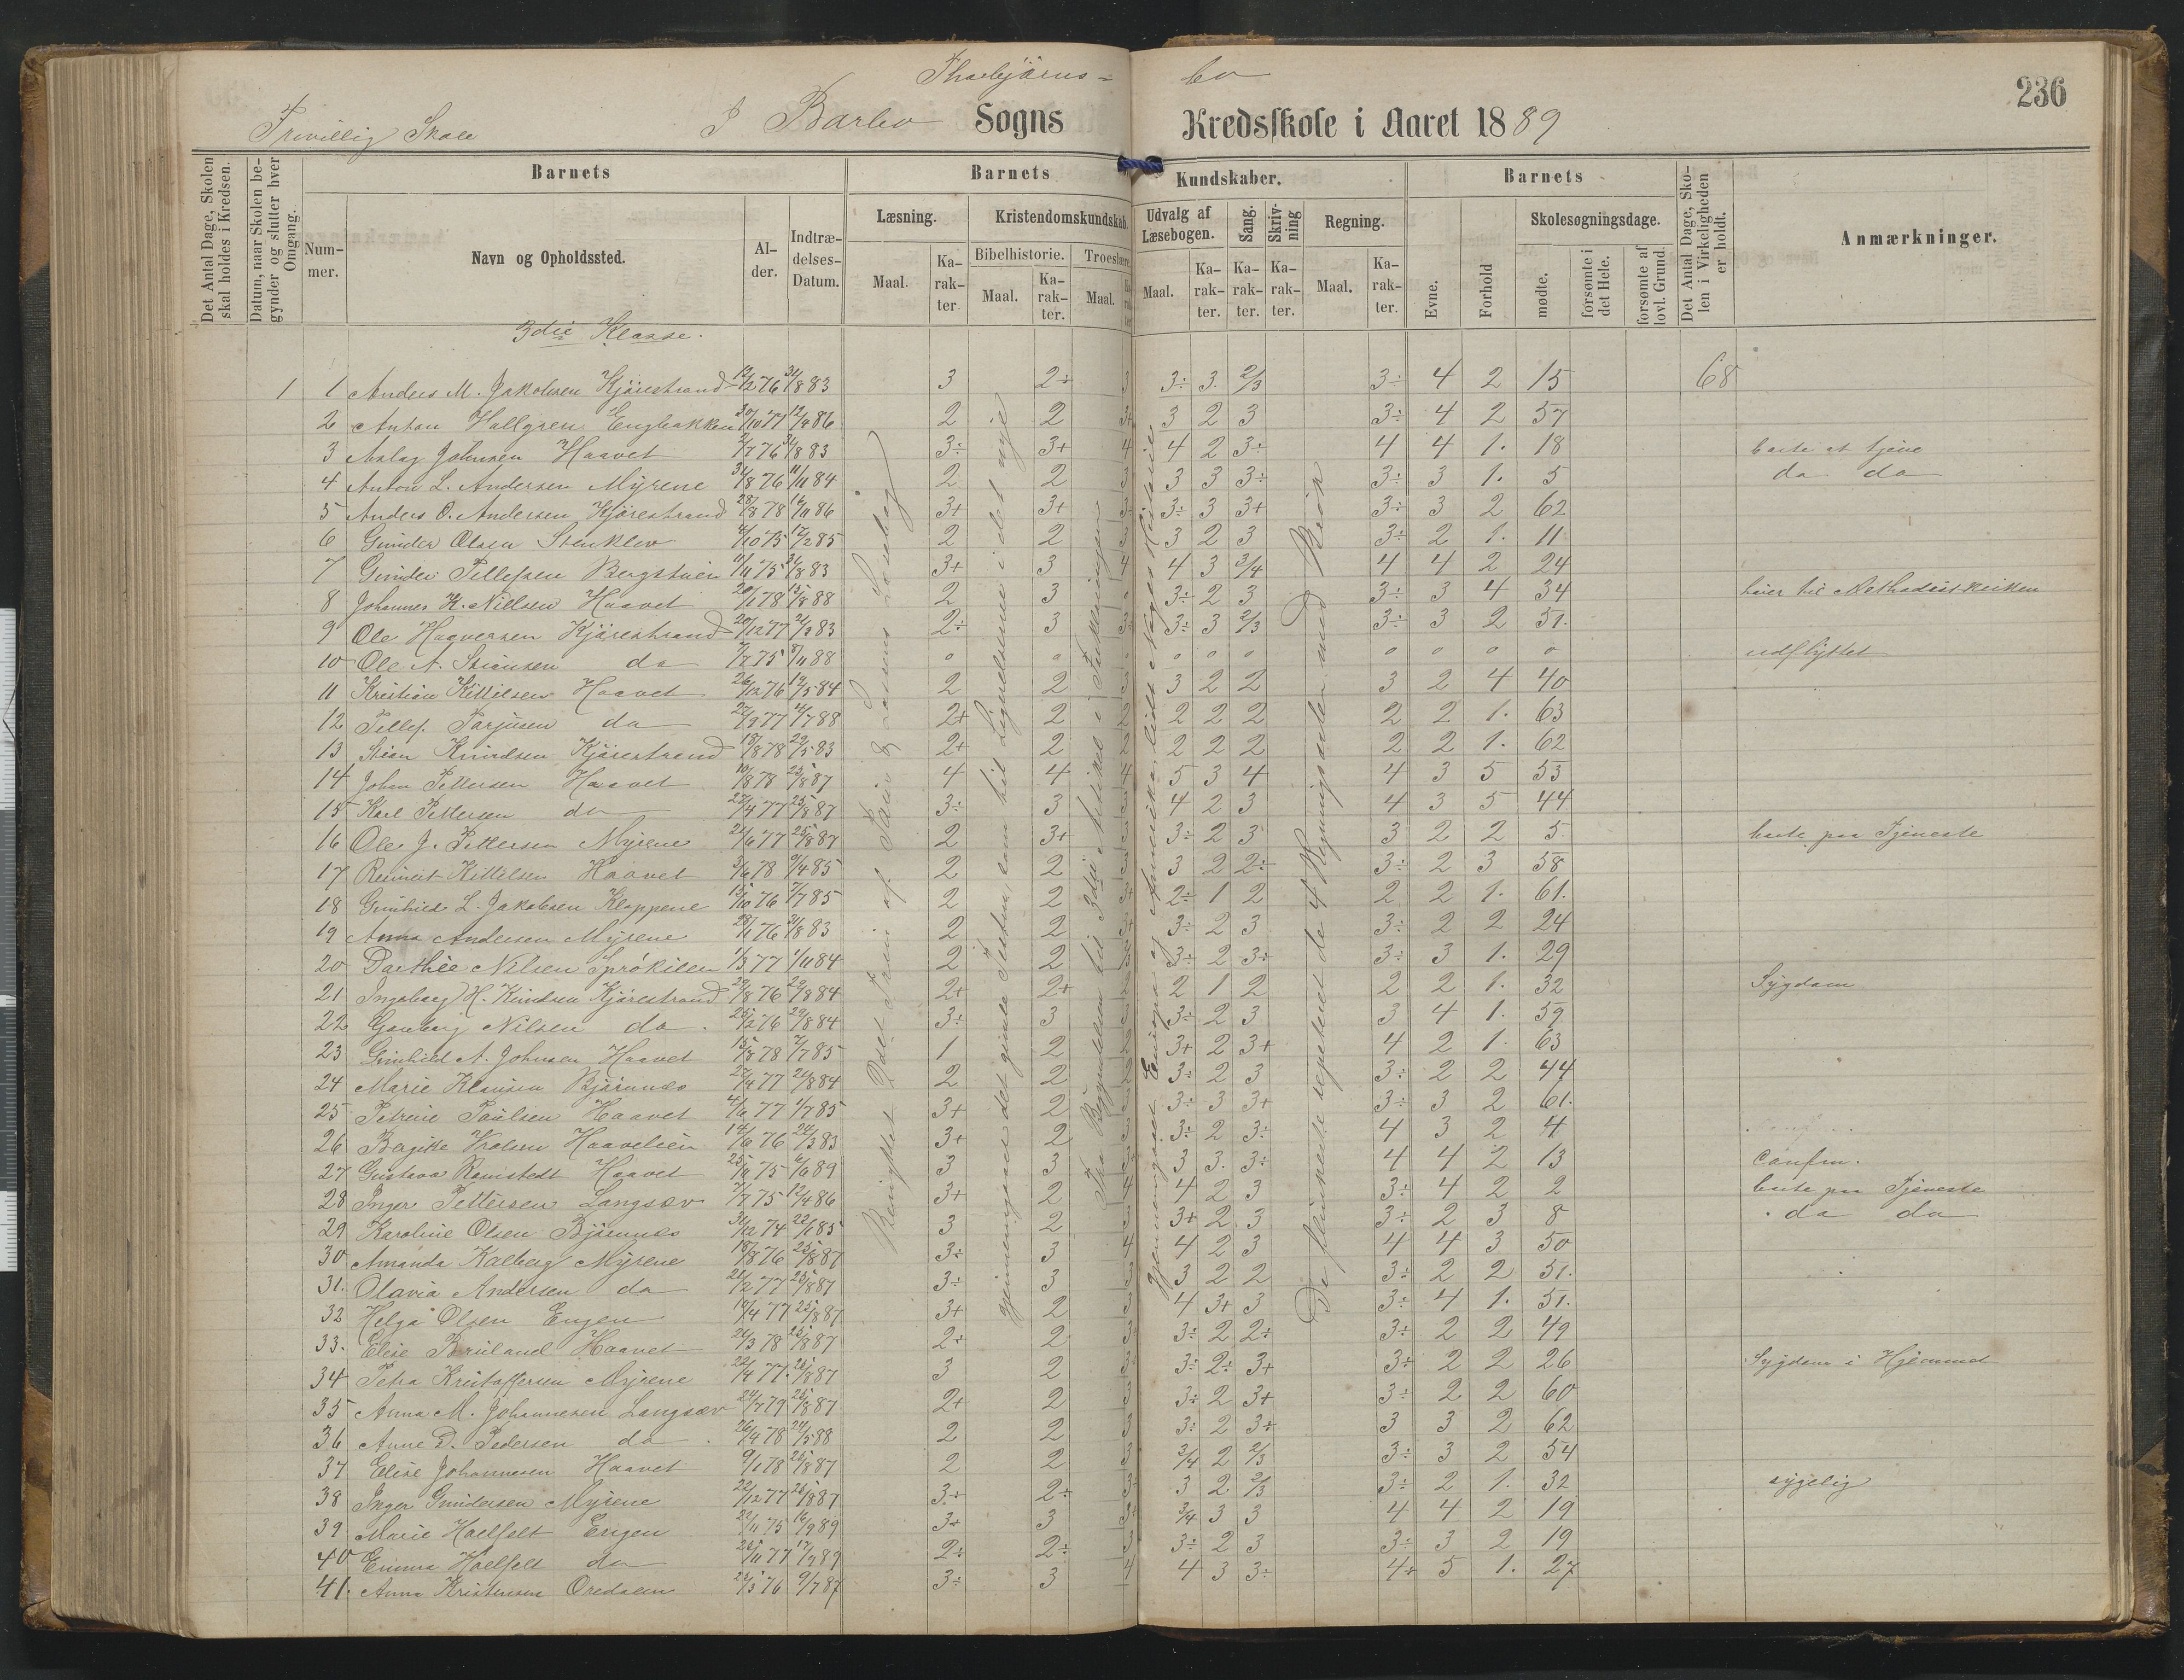 236
Thorbjørns= bo
Frivillig Skole I Barbo Sogns Kredsskole i Aaret 1889
Det Antal Dage, Skolen skal holdes i Kredsen.
Datum, naar Skolen begynder og slutter hver Omgang.
Barnets
Nummer.
Navn og Opholdssted.
Alder.
Indtrædelses-Datum.
Barnets Kundskaber.
Læsning.
Maal.
Karakter.
Kristendomskundskab.
Bibelhistorie.
Maal.
Karakter.
Troeslære.
Maal.
Udvalg af Læsebogen.
Maal.
Karakter.
Sang.
Karakter.
Skrivning
Karakter.
Regning.
Maal.
Karakter.
Barnets
Evne.
Forhold
Skolesøgningsdage.
mødte.
forsømte i det Hele.
forsømte af lovl. Grund.
Det Antal Dage, Skolen i Virkeligheden er holdt.
Anmærkninger.
3die Klasse.
1 1 Anders M. Jakobsen Kjörestrand 12/2 76 31/8 83 3 2÷ 3 3÷ 3. 2/3 3÷ 4 2 15 68
2 Anton Hallgren Engbakken 30/10 77 12/4 86 2 2 3+ 3 2 3 3÷ 4 2 57
3 Aslag Johnsen Haavet 2/7 76 31/8 83 3÷ 3+ 4 4 2 3÷ 4 4 1. 18 borte at tjene
4 Anton L. Andersen Myrene 31/8 76 11/11 84 2 2 3 3 3 3÷ 3÷ 3 1. 5 do do
5 Anders O. Andersen Kjörestrand 28/8 78 16/11 86 3+ 3+ 3÷ 3÷ 3 3+ 3÷ 3 2 62
6 Gunder Olsen Stenklev 4/10 75 17/2 85 2 2 3 3 2 3 3÷ 2 1. 11
7 Gunder Tellefsen Bergstuen 11/11 75 31/8 83 3+ 3 4 4 3 3/4 4 4 2 24
8 Johannes K. Nielsen Haavet 20/1 78 15/8 88 2 3 3÷ 2 3 3÷ 3 4 34 hører til Methodistkirken
9 Ole Haaversen Kjörestrand 20/12 77 24/3 83 2÷ 3 3÷ 3÷ 3 2/3 3÷ 3 2 51.
10 Ole A. Stiansen do 7/7 75 8/11 88 o o o o o o o o o o udflyttet
11 Kristian Kittilsen Haavet 26/12 76 19/5 84 2 2 3 3 2 2 3 2 4 40
12 Tellef Tarjusen do 27/9 77 4/7 88 2+ 2 2 2 2 2 2 2 1. 63
13 Stian Knudsen Kjörestrand 18/8 78 29/5 83 2+ 2 2 2 2 2 2 2 1. 62
14 Johan Pettersen Haavet 10/8 78 25/8 87 4 4 4 5 3 4 4 3 5 53
15 Karl Pettersen do 27/4 77 25/8 87 3÷ 3 3 4 2 3 4 3 5 44
16 Ole J. Pettersen Myrene 24/6 77 25/8 87 2 3+ 3÷ 2 3 3 2 2 5 borte paa Tjeneste
17 Reinert Kittilsen Haavet 3/6 78 9/4 85 2 2 3 3 2 2÷ 3÷ 2 3 58
18 Gunhild L. Jakobsen Kloppene 15/10 76 7/7 85 2 2 3+ 2÷ 1 2 2 2 1. 61.
19 Anna Andersen Myrene 28/1 76 31/8 83 2 2 3+ 3÷ 2 3 3÷ 2 2 24
20 Dorthe Nilsen Sprökilen 1/3 77 1/11 84 2 2 3÷ 2 3÷ 3÷ 3 1. 29
21 Ingeborg H. Knudsen Kjörestrand 29/8 76 29/8 84 2+ 2+ 2 2 1 2 2 2 1. 32 Sygdom
22 Gonborg Nilsen do. 25/2 76 29/8 84 3÷ 3 3÷ 2 3 3 4 1. 59
23 Gunhild A. Johnsen Haavet 15/8 78 7/7 85 1 2 2 3+ 2 3+ 4 2 1. 63
24 Marie Klausen Bjönnes 27/4 77 24/8 84 2 2 2 3÷ 2 3 3÷ 2 2 44
25 Petrine Paulsen Haavet 4/6 77 1/7 85 3+ 2 3 3÷ 3 3+ 3÷ 3 2 61.
26 Bergitte Haaveleen 14/6 76 24/3 83 3+ 2 3 3÷ 2 3÷ 4 3 2 4
27 Gustava Haavet 25/11 75 6/6 89 3 3 3 3. 3÷ 4 4 2 13 Confirm.
28 Inger Pettersen Langsæv 7/7 75 12/4 86 3+ 2 4 4 2 3 3÷ 4 2 2 borte paa Tjeneste
29 Karoline Olsen Bjönnes 31/12 74 22/1 85 3 2 3 3+ 2 3 3÷ 2 3 8 do do
30 Amanda Kalberg Myrene 18/8 76 25/8 87 3÷ 3 4 4 2 3 4 4 3 50
31. Olavia Andersen do 21/2 77 25/8 87 3÷ 3 3 3 2 2 3÷ 2 2 51.
32 Helga Olsen Engen 19/4 77 25/8 87 3+ 2 3 4 3+ 3 3÷ 4 1. 51.
33. Elise Bruland Haavet 24/3 78 25/8 87 2+ 2 3÷ 3÷ 2 2÷ 3÷ 2 2 49
34 Petra Kristoffersen Myrene 22/4 77. 25/8 87 3 2 3÷ 3÷ 2÷ 3+ 3+ 2 2 26 Sygdom i Hjemmet
35 Anna M. Johannesen Langsæv 24/7 79 25/8 87 2+ 2 3 3÷ 2 3+ 3÷ 2 2 60
36 Anne D. Pedersen do. 26/4 78 24/5 88 2 2 3 3÷ 2 3÷ 3 3 2 62
37 Elise Johannesen Haavet 9/1 78 25/8 87 2 2 3 3/4 2 2/3 3÷ 3 2 54
38 Inger Gundersen Myrene 22/12 77 25/8 87 3+ 2÷ 3÷ 3 2. 2/3 3÷ 2 1. 32 sygelig
39 Marie Hoelfelt Engen 22/11 75 16/9 89 3+ 3 3+ 3/4 3 3 4 4 2 19
40 Emma Hoelfelt do 25/11 77 17/9 89 2÷ 2÷ 3 3÷ 2 3 3÷ 3 2 19
41. Anna Kristensen Oredalen 22/3 76 9/7 87 3÷ 3 4 4 3 3÷ 4+ 5 1. 27
Benyttet 2det Trin af Pauss & Lassens Læsebog
gjennemgaaet det gamle Testam. samt til Lignelserne i det nye
Fra Begyndelsen til 3die Artikel i Forklaringen
gjennemgaaet Europa og Amerika, lidt Norges Historie
De flinkeste repeteret de 4 Regningsarter med Brök